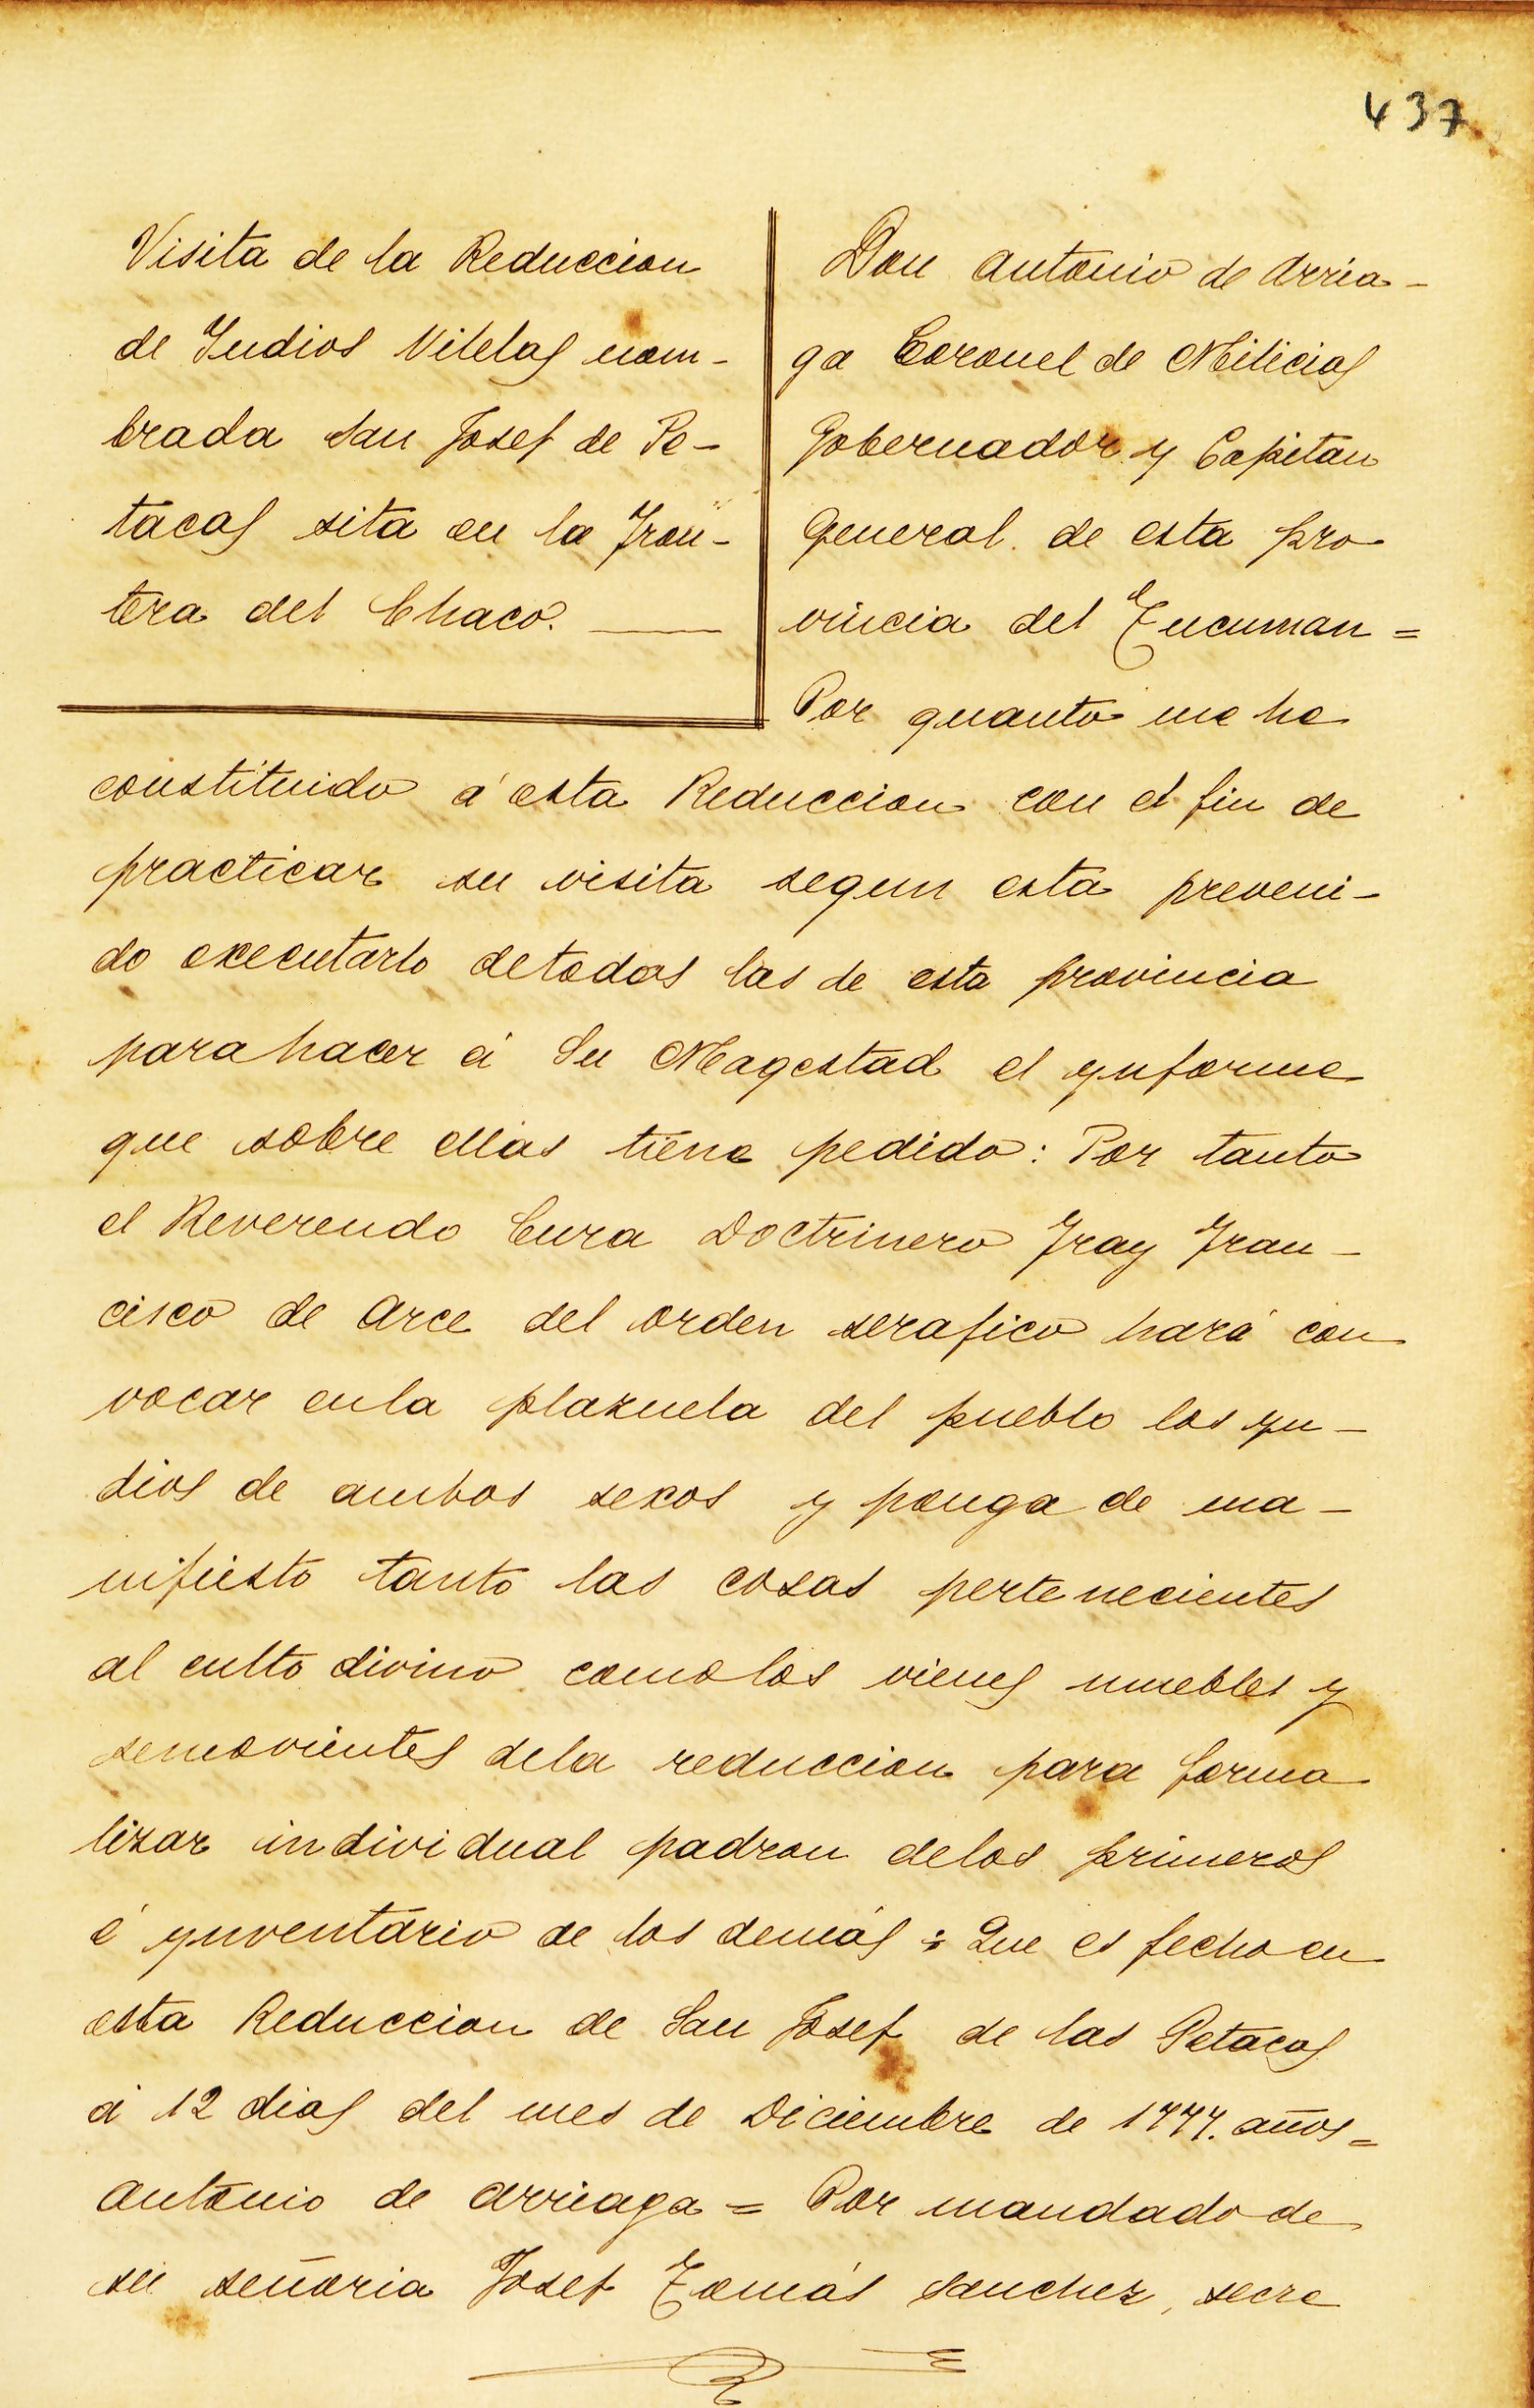 437
Visita de la Reduccion
de Yndios Vilelas nom-
brada San Josef de Pe-
tacas sita en la Fron-
tera del Chaco.
Don Antonio de Arria-
ga Coronel de Milicias
Gobernador y Capitan
General de esta pro
vincia del Tucuman =
Por quanto me he
constituido á esta Reduccion con el fin de
practicar su visita segun esta preveni-
do executarlo detodas las de esta provincia
para hacer á Su Magestad el ynforme
que sobre ellas tiene pedido: Por tanto
el Reverendo Cura Doctrinero Fray Fran-
cisco de Arce del orden serafico hará con
vocar enla plazuela del pueblo los yn-
dios de ambos sexos y ponga de ma-
nifiesto tanto las cosas pertenecientes
al culto divino como los vienes muebles y
semovientes dela reduccion para forma
lizar individual padron delos primeros
é ynventario de los demás; Que es fecho en
esta Reduccion de San Josef de las Petacas
á 12 dias del mes de Diciembre de 1777. años=
Antonio de Arriaga = Por mandado de
su señoria Josef Tomás Sanchez, secre